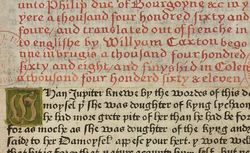 unto Philip duc of Borgoyne & c in y
yere a thousand four hondred sixty and
foure, and translated out of frenche
to englisshe by Willyam Caxton bego
une in brugis a thousand four hondred
sixty and eight, and fynysshid in Colei
a thousand four hondred sixty & eleven
Whan Jupiter knewe by the wordes of this da
moysel yt she was doughter of kyng lychaon
he had more grete pite of her than he had be fore
for as moche as she was doughter of the kyng and
said to her Damoysel appese your hert. y wote well